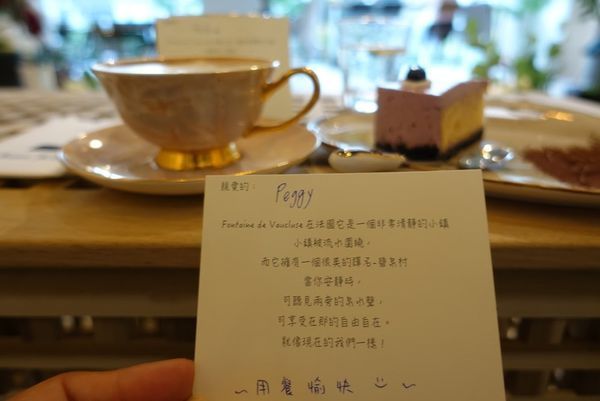 親愛的： Peggy
Fontaine de Vaucluse 在法國它是一個非常清靜的小鎮
小鎮被流水圍繞，
而它擁有一個很美的譯名-碧泉村
當你安靜時，
可聽見兩旁的泉水聲，
可享受在那的自由自在。
就像現在的我們一樣！
~ 用餐愉快 ☺ ~